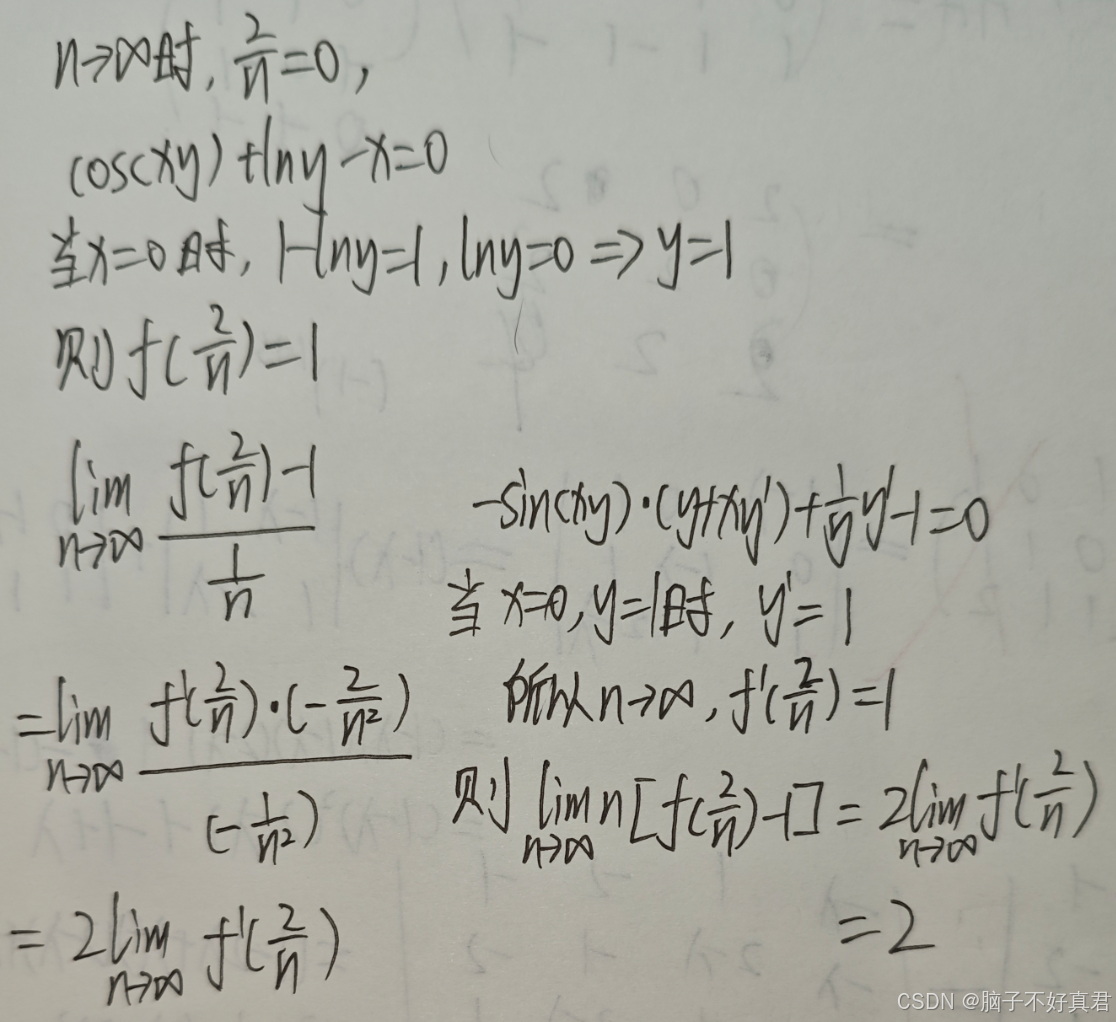 n→∞时, 2/n=0,
cos(xy)+lny-x=0
当x=0时, 1-lny=1, lny=0 => y=1
则 f(2/n)=1
lim n→∞ (f(2/n)-1)/(1/n)
=lim n→∞ (f'(2/n)·(-2/n²))/(-1/n²)
= 2lim n→∞ f'(2/n)
-sin(xy)·(y+xy')+1/y y'-1=0
当 x=0, y=1时, y'=1
所以n→∞, f'(2/n)=1
则 lim n→∞ n[f(2/n)-1] = 2lim n→∞ f'(2/n)
=2
CSDN @脑子不好真君